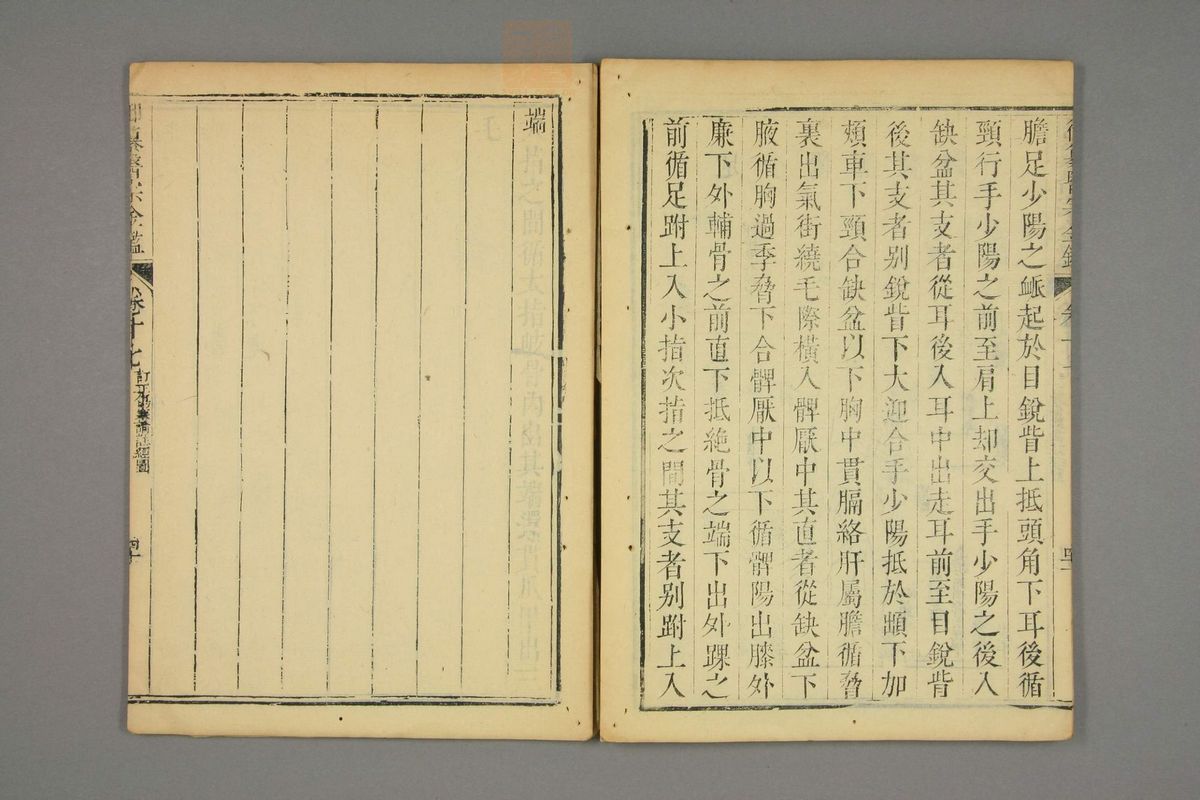 膽足少陽之𧖴起於目銳眥上抵頭角下耳後循
頸行手少陽之前至肩上却交出手少陽之後入
缺盆其支者從耳後入耳中出走耳前至目銳眥
後其支者别銳眥下大迎合手少陽抵於䪼下加
頰車下頸合缺盆以下胸中貫膈絡肝屬膽循脅
裏出氣街繞毛際橫入髀厭中其直者從缺盆下
腋循胸過季脅下合髀厭中以下循髀陽出膝外
廉下外輔骨之前直下抵絶骨之端下出外踝之
前循足跗上入小指次指之間其支者别跗上入
端
卷十七